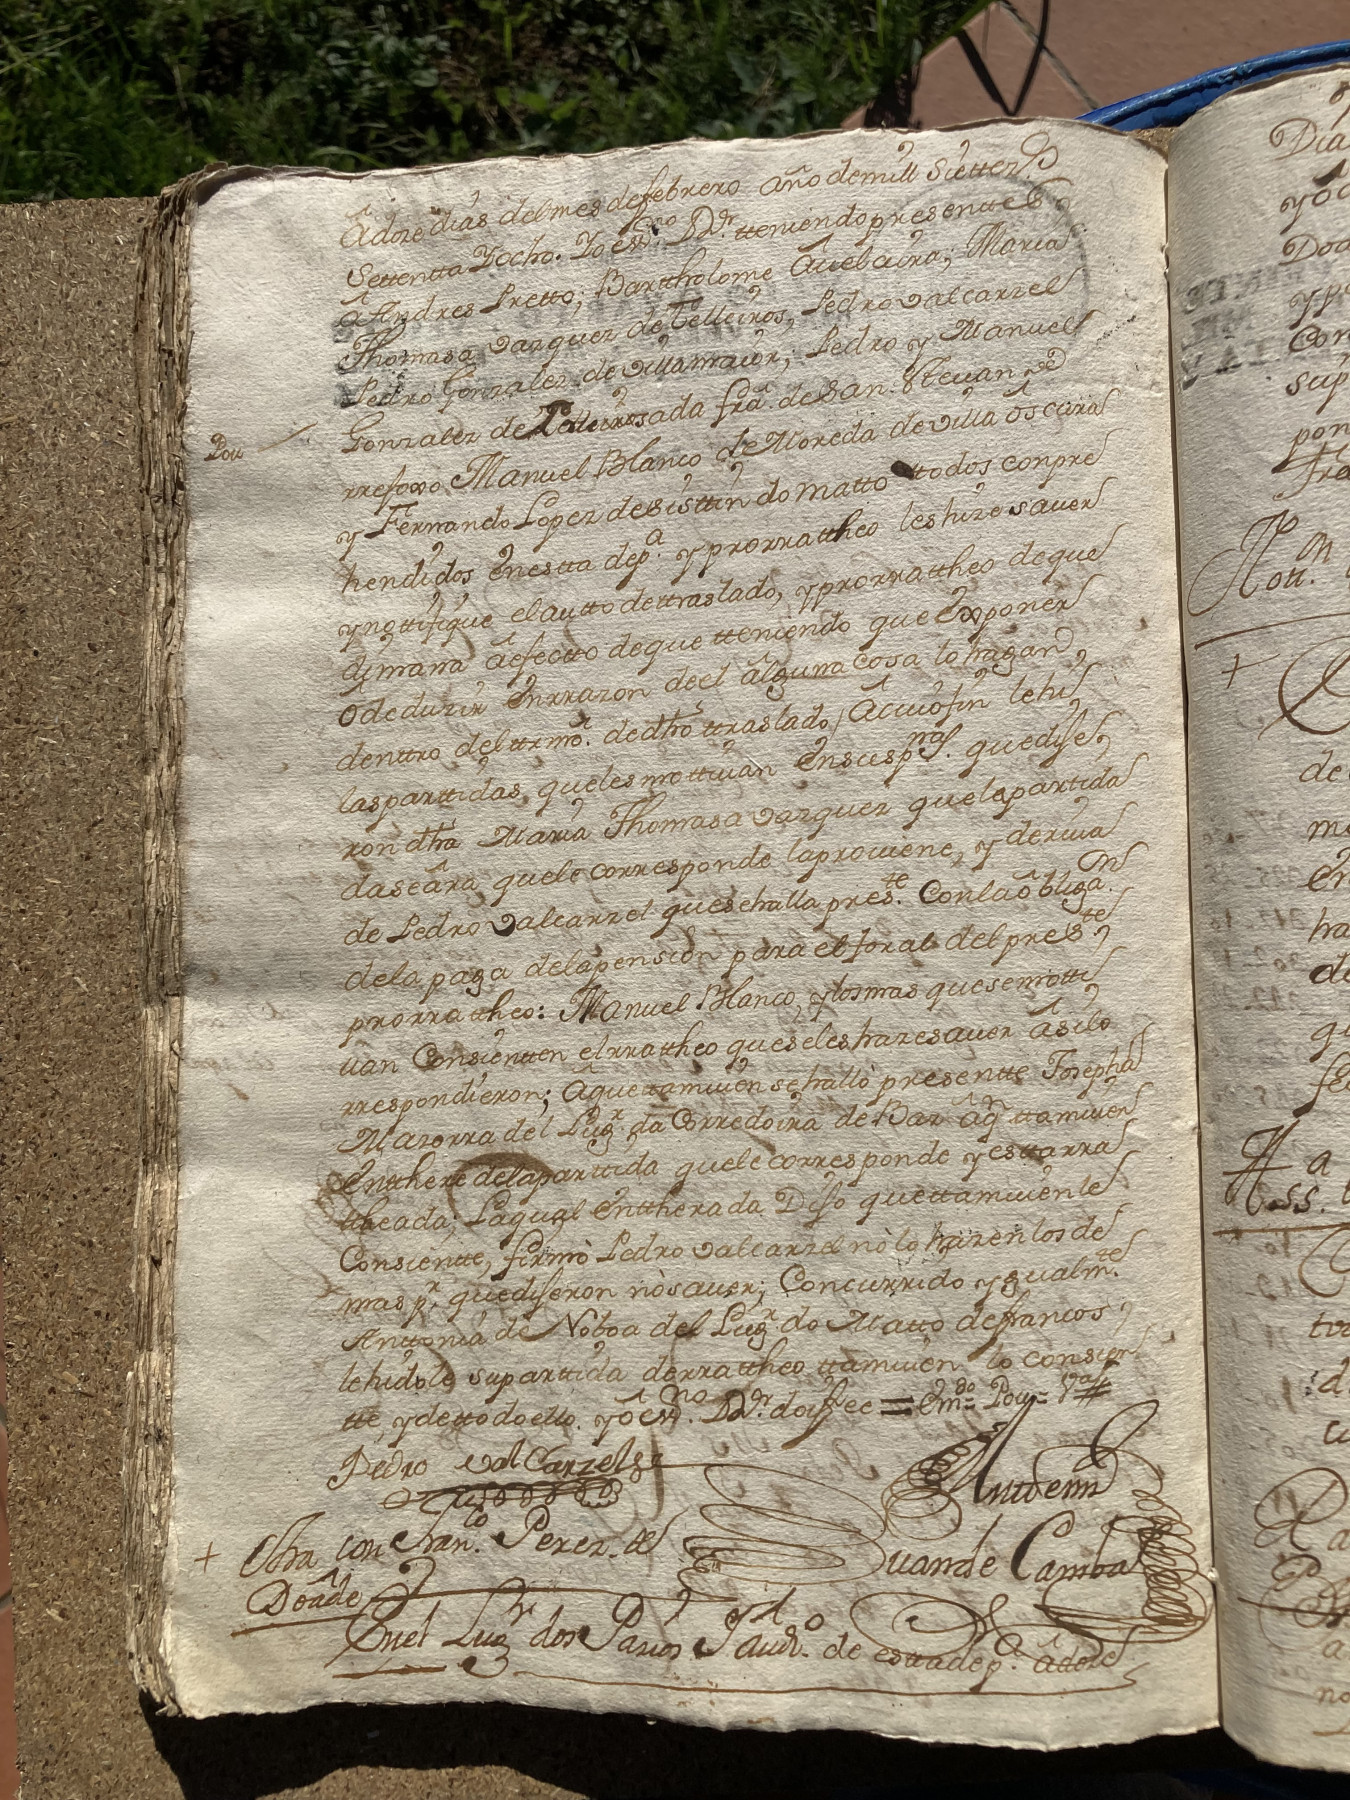 âdoze dias del mes de febrero año de mill Siettez.s
Settentta Yocho. Yo essno. Rr. tteniendo presenttes,
â Andres Pretto; Barttholome Âvelaira; Maria
Thomasa vazquez de Telleiros, Pedro valcarzel
Pedro Gonzalez de villamaior; Pedro y Manuel
Gonzalez de Telleiros ada fra. de San Stevan de
Pou
rrefoxo Manuel Blanco de Moreda de villa ôscura
y Fernando Lopez de sisttin do matto ttodos conpre
hendidos ênestta depa. y prorrattheo les hize saver
y nottifique el autto de ttraslado, y prorrattheo de que
dimana âefectto de que tteniendo que êxponer
ô deduzir ênrrazon de el âlguna cosa lo hagan
denttro del ttermo. de dho ttraslado, Âcuio fin lehi
las parttidas, que les mottivan ênsus pnas. que dise,
ron dha Maria Thomasa vazquez que la partida
da seâra que le corresponde la proviene, y deriva
de Pedro valcarzel que se halla preste. Con la ôbligaon.
de la paga de la pension para el foral del presste,
prorrattheo: Manuel Blanco, y los mas que se motti
van Consientten el rrattheo que se les haze saver âsi lo
rrespondieron; Âque ttamvien se hallò presentte Josepha
Mazorra del Lugr. da Corredoira de Bar âqn ttamvien
Entthere de la parttida que le corresponde y estta rra
ttheada; La qual êntthe rada Dijo que ttamvien le
Consientte, firmò Pedro valcarzel nò lo hazen los de
mas pr. que dijeron nò saver; Concurrido y gualmte.
Anttonia de Nóboa del Lugr do Matto de francos,
lehidole su parttida de rrattheo ttamvien lo consien
tte, y de ttodo ello yô essno. Rr. doi fee = Emdo = Pou = Va
Pedro valCarzel
Antemi
Juan de Camba
+ Otra con Franco. Perez de
Doâde
En el Lugr dos Pazios Y audo. de estta depa. âdoze